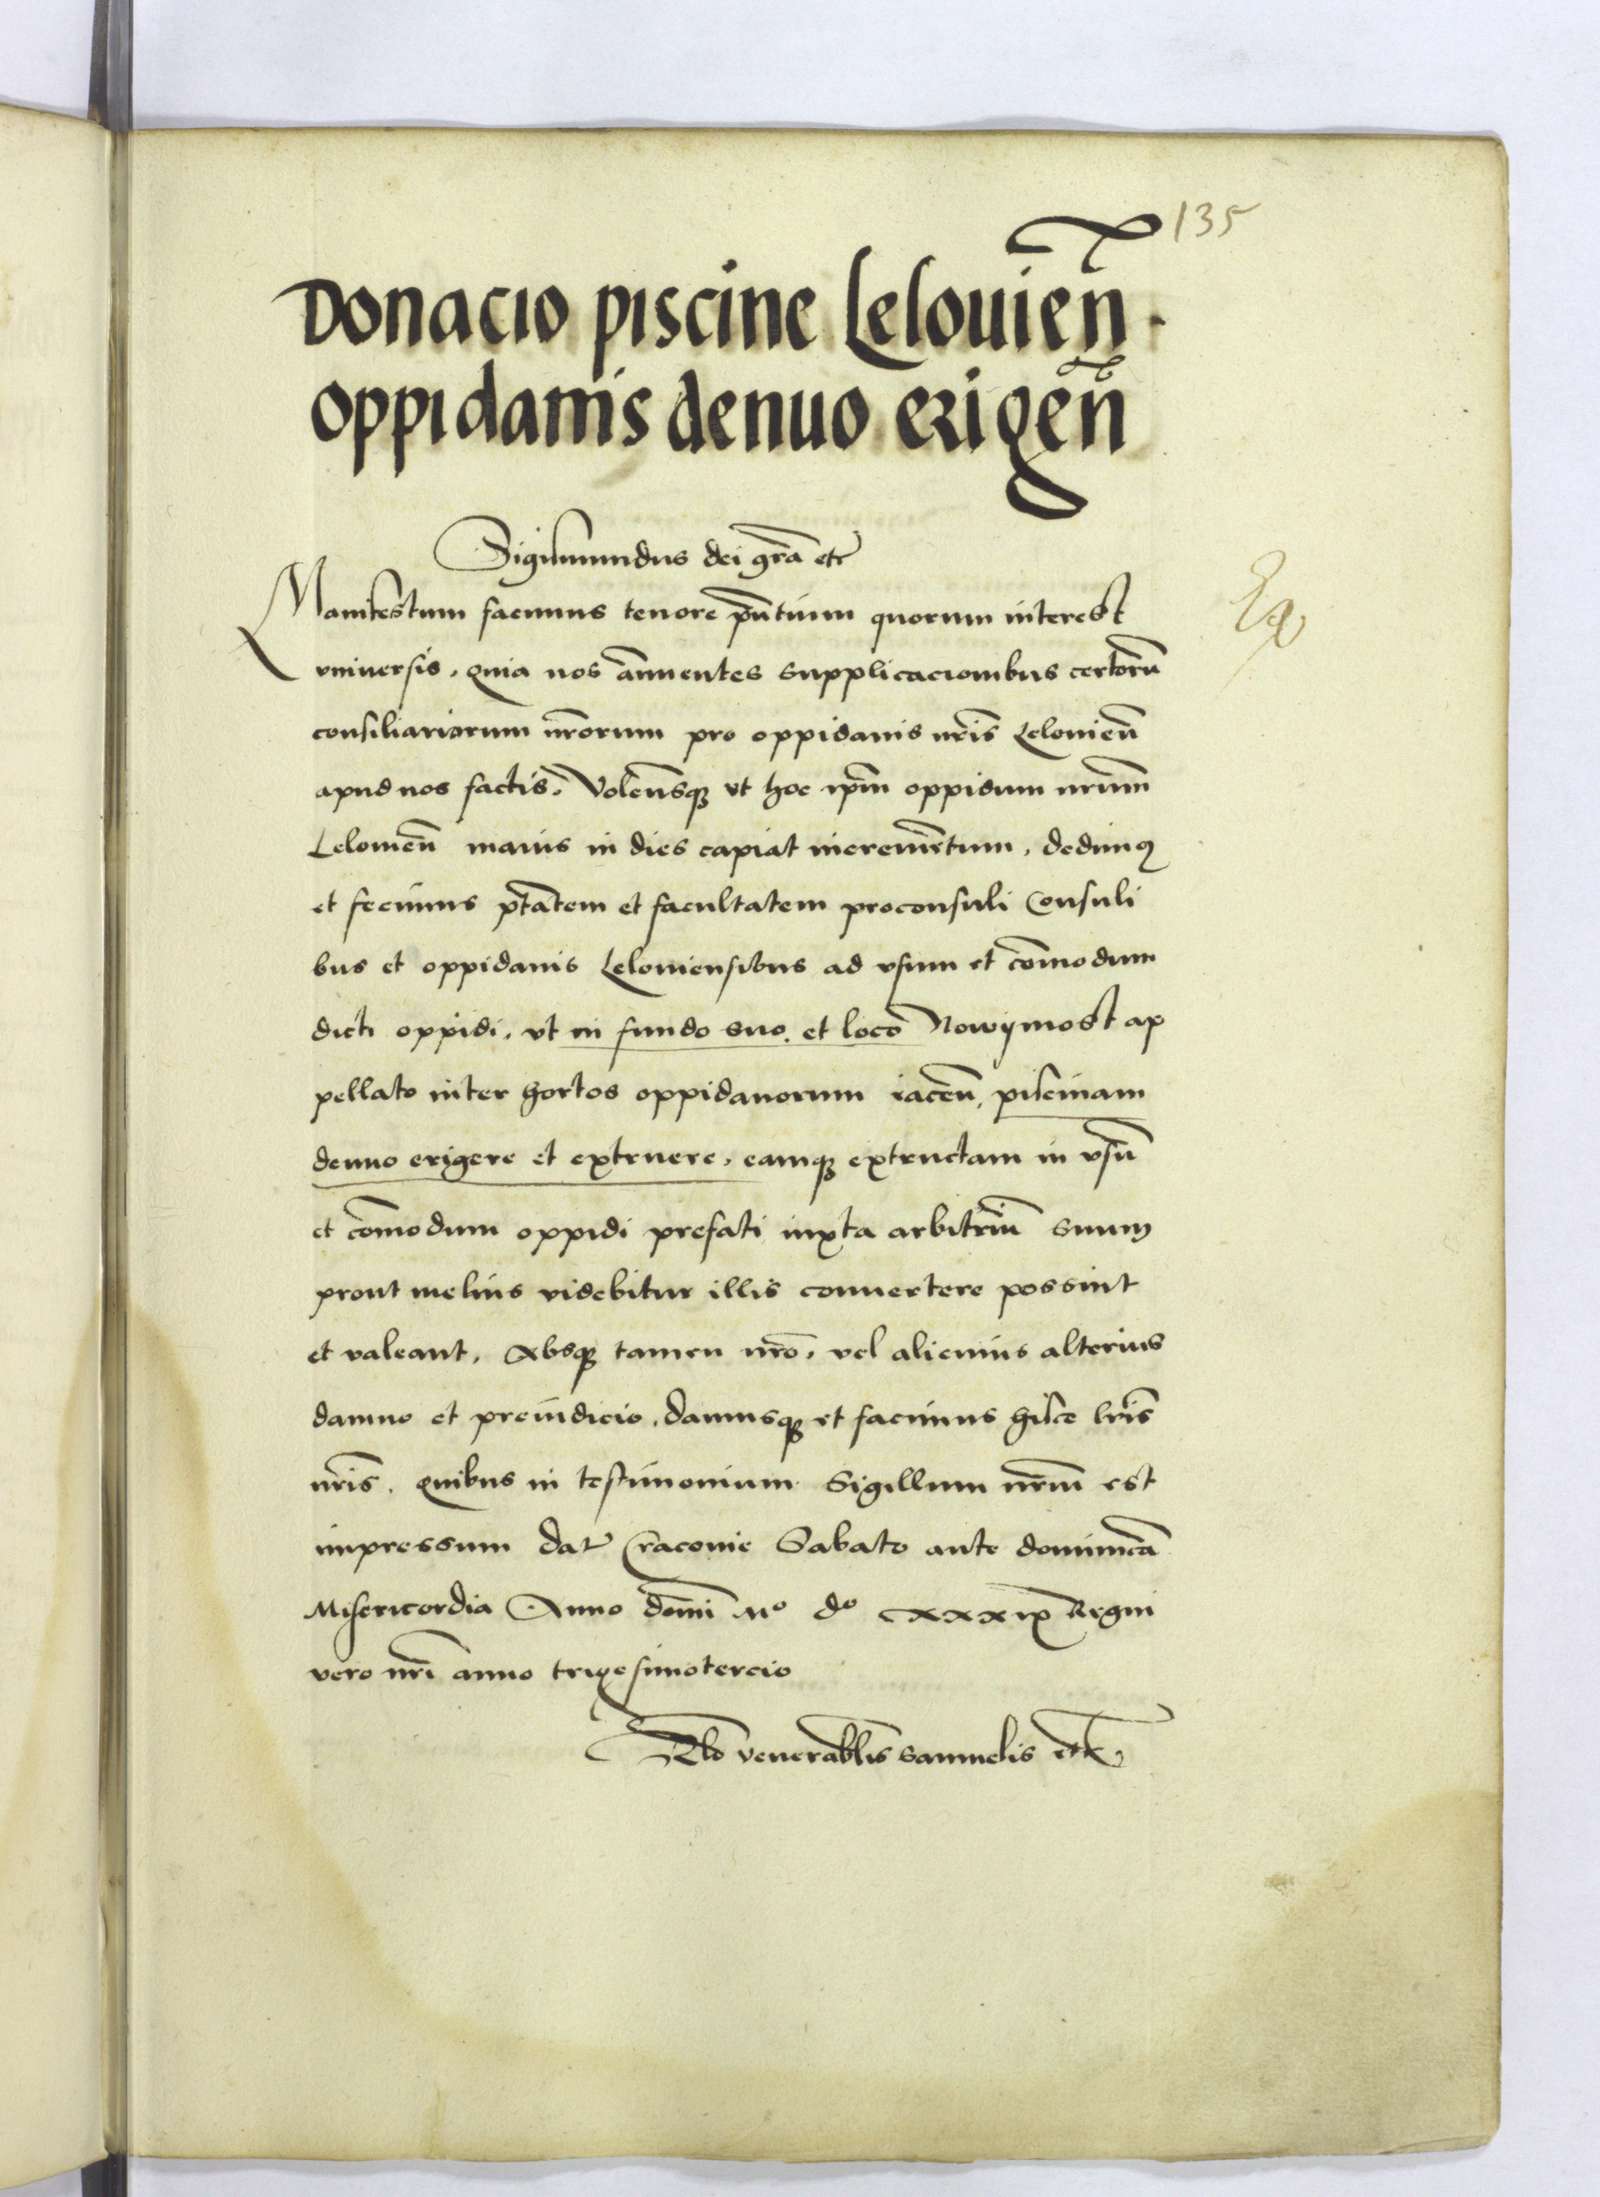 135
Donacio piscine Lelouien̄.
oppidanis denuo erigen̄
Sigismundus dei gr̄a etc̄
Manifestum facimus tenore p̄ntium quorum interest
vniuersis, quia nos an̄uentes supplicacionibus certorū
consiliariorum nr̄orum pro oppidanis nr̄is Lelouien̄
apud nos factis. Volen̄sqꝫ vt hoc ip̄m oppidum nr̄um
Lelouien̄ maius in dies capiat incremēntum, dedimꝰ
et fecimus p̄tatem et facultatem proconsuli Consuli
bus et oppidanis Leloniensibus ad vsum et com̄odum
dicti oppidi, vt in fundo suo, et loco Nowymost ap
pellato inter hortos oppidanorum iacen̄, piscinam
denuo erigere et extruere, eamqꝫ extructam in vsū
et com̄odum oppidi prefati iuxta arbitriū suum
prout melius videbitur illis conuertere possint
et valeant, Absqꝫ tamen nr̄o, vel alicuius alterius
damno et preiudicio, damusqꝫ et facimus hisce lr̄is
nr̄is, quibus in testimonium Sigillum nr̄um est
impressum dat̄ Cracouie Sabato ante dominicā
Misericordia Anno domī Mº dº xxxix Regni
vero nr̄i anno trigesimotercio
Rl̄o venerabl̄is Samuelis etc